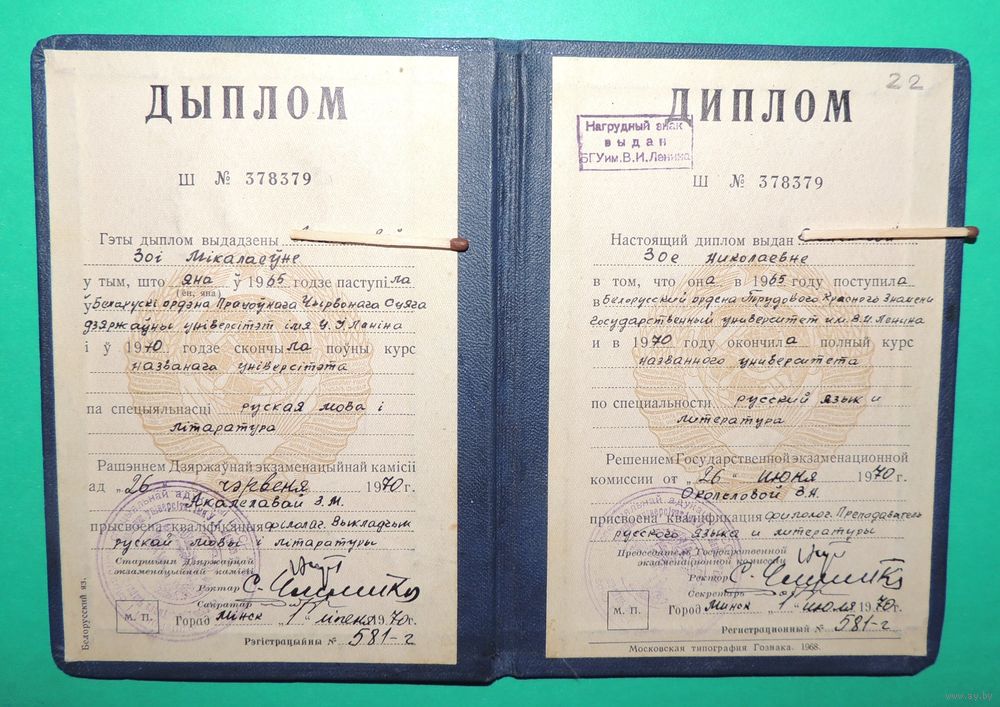 ДЫПЛОМ
Ш № 378379
Гэты дыплом выдадзены
Зоі Мікалаеўне
у тым, што яна ў 1965 годзе паступіла
(ён, яна)
ў Беларускі ордэна Працоўнага Чырвонага Сцяга
дзяржаўны універсітэт імя У.І. Леніна
і ў 1970 годзе скончыла поўны курс
названага універсітэта
па спецыяльнасці руская мова і
літаратура
Рашэннем Дзяржаўнай экзаменацыйнай камісіі
ад „26" чэрвеня 1970 г.
Акалелавай З.М.
прысвоена кваліфікацыя філолаг. Выкладчык
рускай мовы і літаратуры
Старшыня Дзяржаўнай
экзаменацыйнай камісіі
Рэктар
Сакратар
М. П.
Горад Мінск „1" ліпеня 1970 г.
Рэгістрацыйны № 581-г
Белорусский яз.
22
ДИПЛОМ
Нагрудный знак
выдан
БГУ им. В.И. Ленина
Ш № 378379
Настоящий диплом выдан
Зое Николаевне
в том, что она в 1965 году поступила
в Белорусский ордена Трудового Красного Знамени
государственный университет им. В.И. Ленина
и в 1970 году окончила полный курс
названного университета
по специальности русский язык и
литература
Решением Государственной экзаменационной
комиссии от „26" июня 1970 г.
З.Н.
присвоена квалификация филолог. Преподаватель
русского языка и литературы
Председатель Государственной
экзаменационной комиссии
Ректор
Секретарь
М. П.
Город Минск „1" июля 1970 г.
Регистрационный № 581-г
Московская типография Гознака. 1968.
www.ay.by